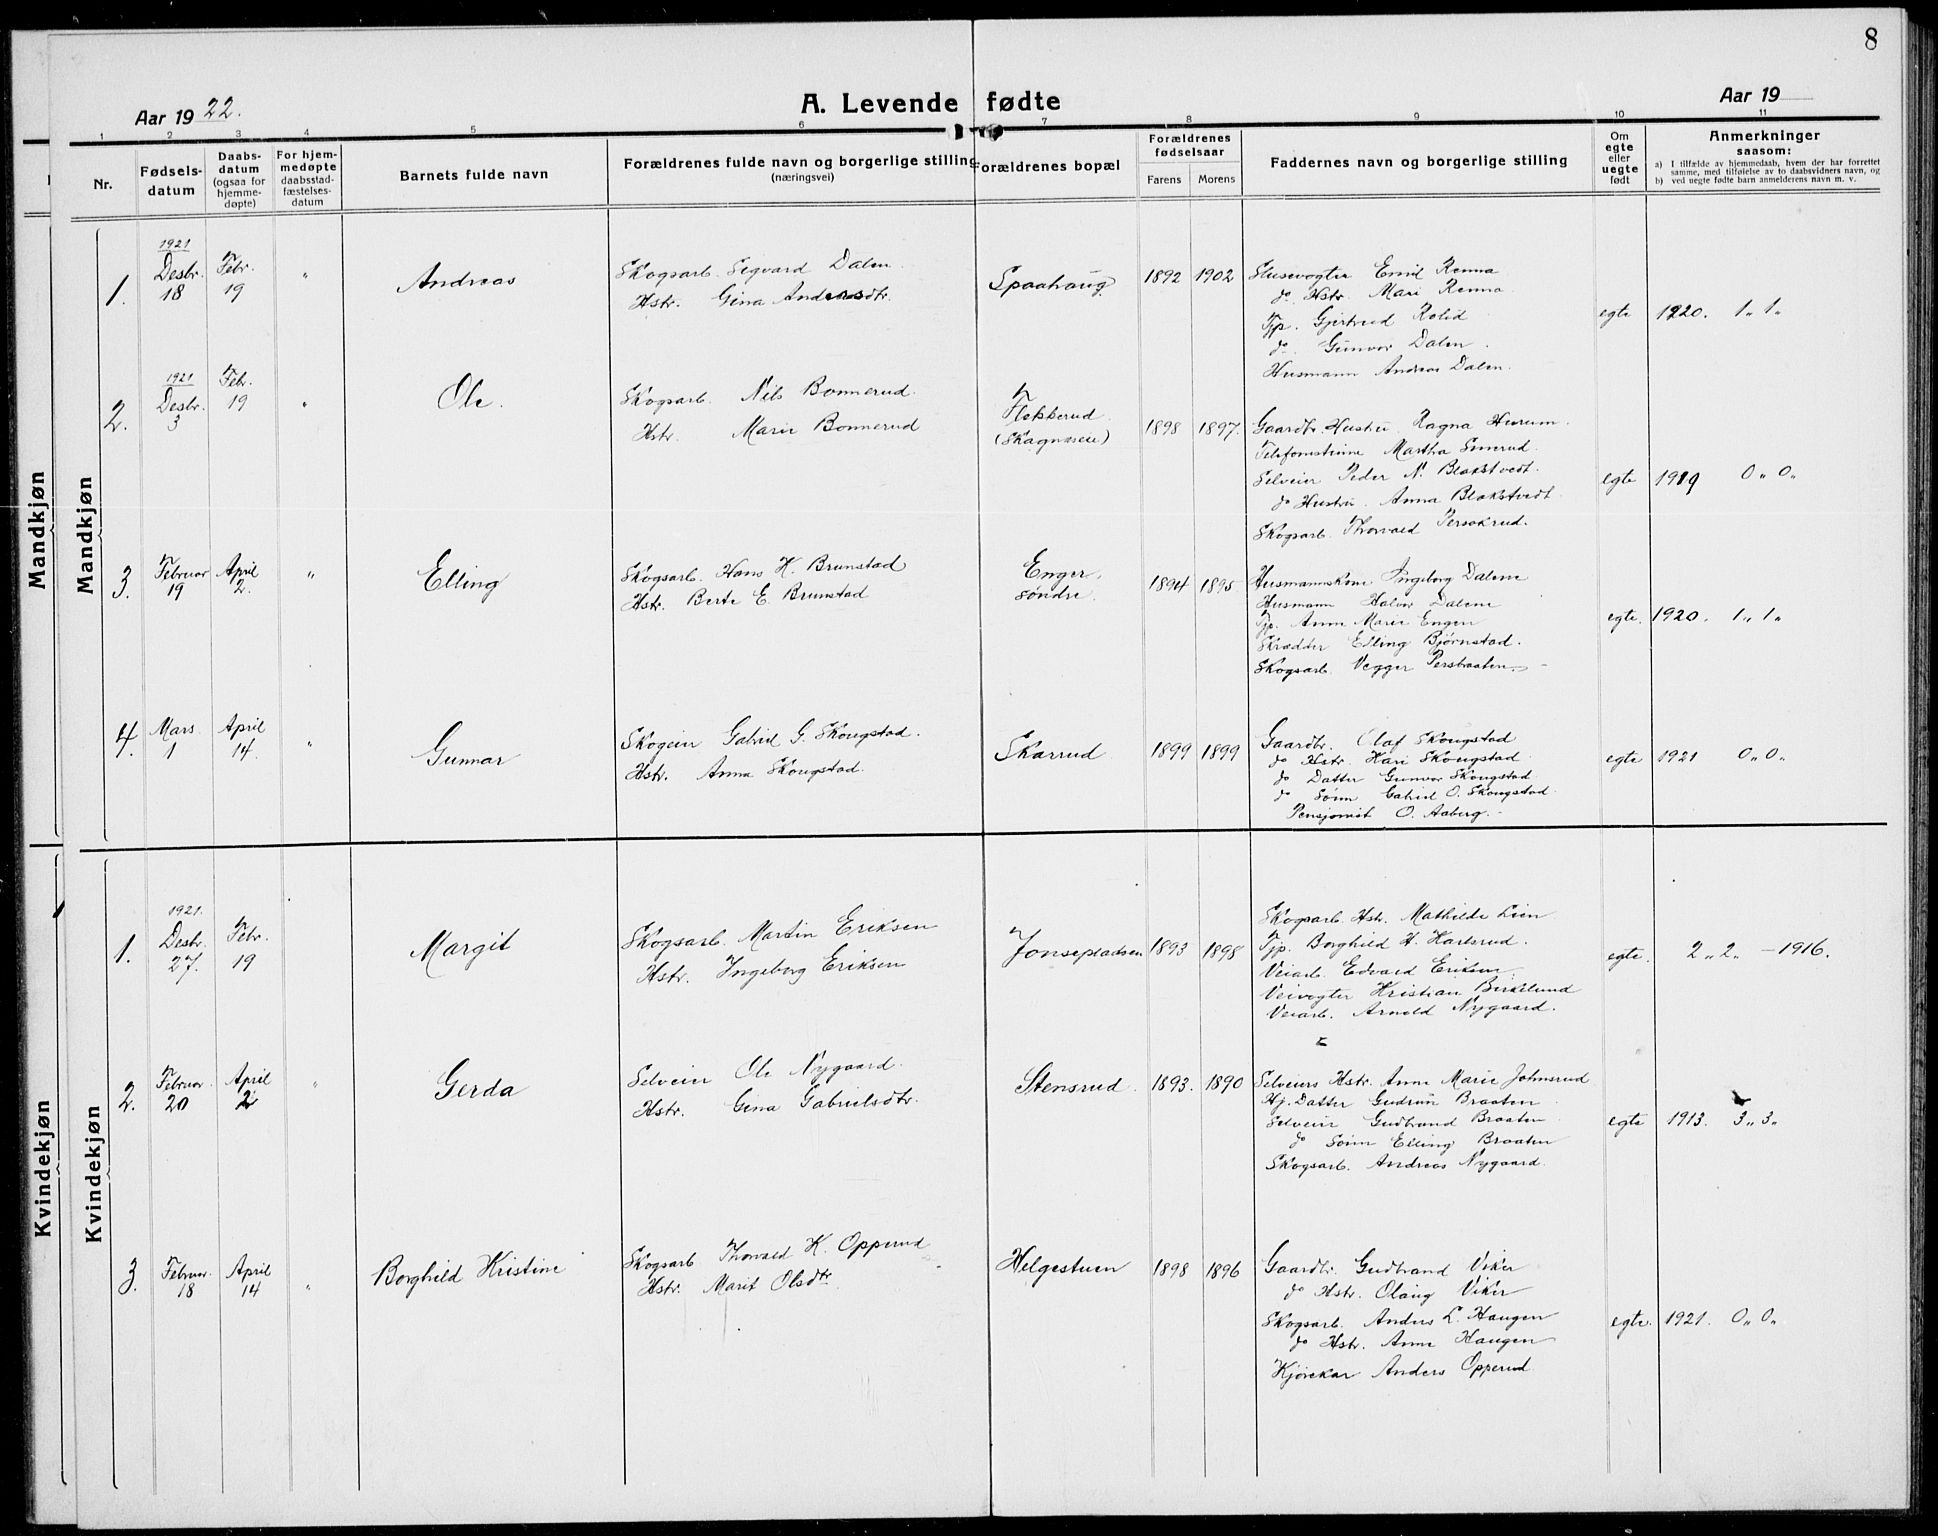 8
Aar 1922.
A. Levende fødte
Aar 19
1 2 3 4 5 6 7 8 9 10 11
Nr.
Fødsels-
datum
Daabs-
datum
(ogsaa for
hjemme-
døpte)
For hjem-
medøpte
daabsstad-
fæstelses-
datum
Barnets fulde navn
Forældrenes fulde navn og borgerlige stilling
(næringsvei)
Forældrenes bopæl
Forældrenes
fødselsaar
Farens Morens
Faddernes navn og borgerlige stilling
Om
egte
eller
uegte
født
Anmerkninger
saasom:
a) I tilfælde av hjemmedaab, hvem der har forrettet
samme, med tilføielse av to daabsvidners navn, og
b) ved uegte fødte barn anmelderens navn m. v.
Mandkjøn
Mandkjøn
1. 1921 Desbr. 18 Febr. 19 "
Andreas
Skogsarb. Sigvard Dalen
Hstr. Gina Andersdtr.
Spaahaug
1892 1902
Slusevogter Emil Renna
do. Hstr. Mari Renna
Tjp. Gjertrud Rolid
do. Gunvor Dalen.
Husmann Andreas Dalen.
egte 1920. 1 " 1 "
2. 1921 Desbr. 3 Febr. 19 "
Ole.
Skogsarb. Nils Bonnerud.
Hstr. Marie Bonnerud
Flekkerud
(Skagnæseie)
1898 1897.
Gaardbr. Hustru Ragna Hurum.
Telefonistinne Martha Simerud.
Selveier Peder N. Blakstvedt.
do Hustru. Anna Blakstvedt.
Skogsarb. Thorvald
egte 1919 0 " 0 "
3. Februar 19 April 2. "
Elling
Skogsarb. Hans H. Brunstad
Hstr. Berte E. Brunstad
Enger,
søndre.
1894 1895
Husmannskone Ingeborg Dalene
Husmann Halvor Dalene
Tjp. Anne Marie Engen
Skrædder Elling Bjørnstad.
Skogsarb. Vegger Persbraaten.
egte. 1920. 1 " 1 "
4. Mars 1 April 14. "
Gunnar
Skogeier Gabriel G. Skougstad.
Hstr. Anna Skougstad.
Skarrud
1899 1899
Gaardbr. Olaf Skougstad
do Hstr. Kari Skougstad
do Datter Gunvor Skougstad
do Sønn Gabriel O. Skougstad.
Pensjonist O. Aaberg.
egte 1921 0 " 0 "
Kvindekjøn
Kvindekjøn
1. 1921. Desbr. 27. Febr. 19
Margit
Skogsarb. Martin Eriksen
Hstr. Ingeborg Eriksen
Jonsepladsen
1893 1898
Skogsarb. Hstr. Mathilde Lien
Tjp. Borghild H. Karlsrud.
Veiarb. Edvard Eriksen
Veivogter Kristian Birkelund
Veiarb. Arnold Nygaard.
egte. 2 " 2 " - 1916.
2. Februar 20 April 2 "
Gerda
Selveier Ole Nygaard.
Hstr. Gina Gabrielsdtr.
Stensrud.
1893. 1890
Selveiers Hstr. Anne Marie Johnsrud
Hj. Datter Gudrun Braaten
Selveier Gudbrand Braaten
do Sønn Elling Braaten
Skogsarb. Andreas Nygaard.
egte 1913. 3 " 3 "
3. Februar. 18 April 14 "
Borghild Kristine
Skogsarb Thorvald K. Opperud
Hstr. Marit Olsdtr.
Helgestuen
1898 1896
Gaardbr. Gudbrand Viker
do Hstr. Olaug Viker
Skogsarb. Anders L. Haugen
do Hstr. Anne Haugen
Kjørekar Anders Opperud.
egte. 1921. 0 " 0 "